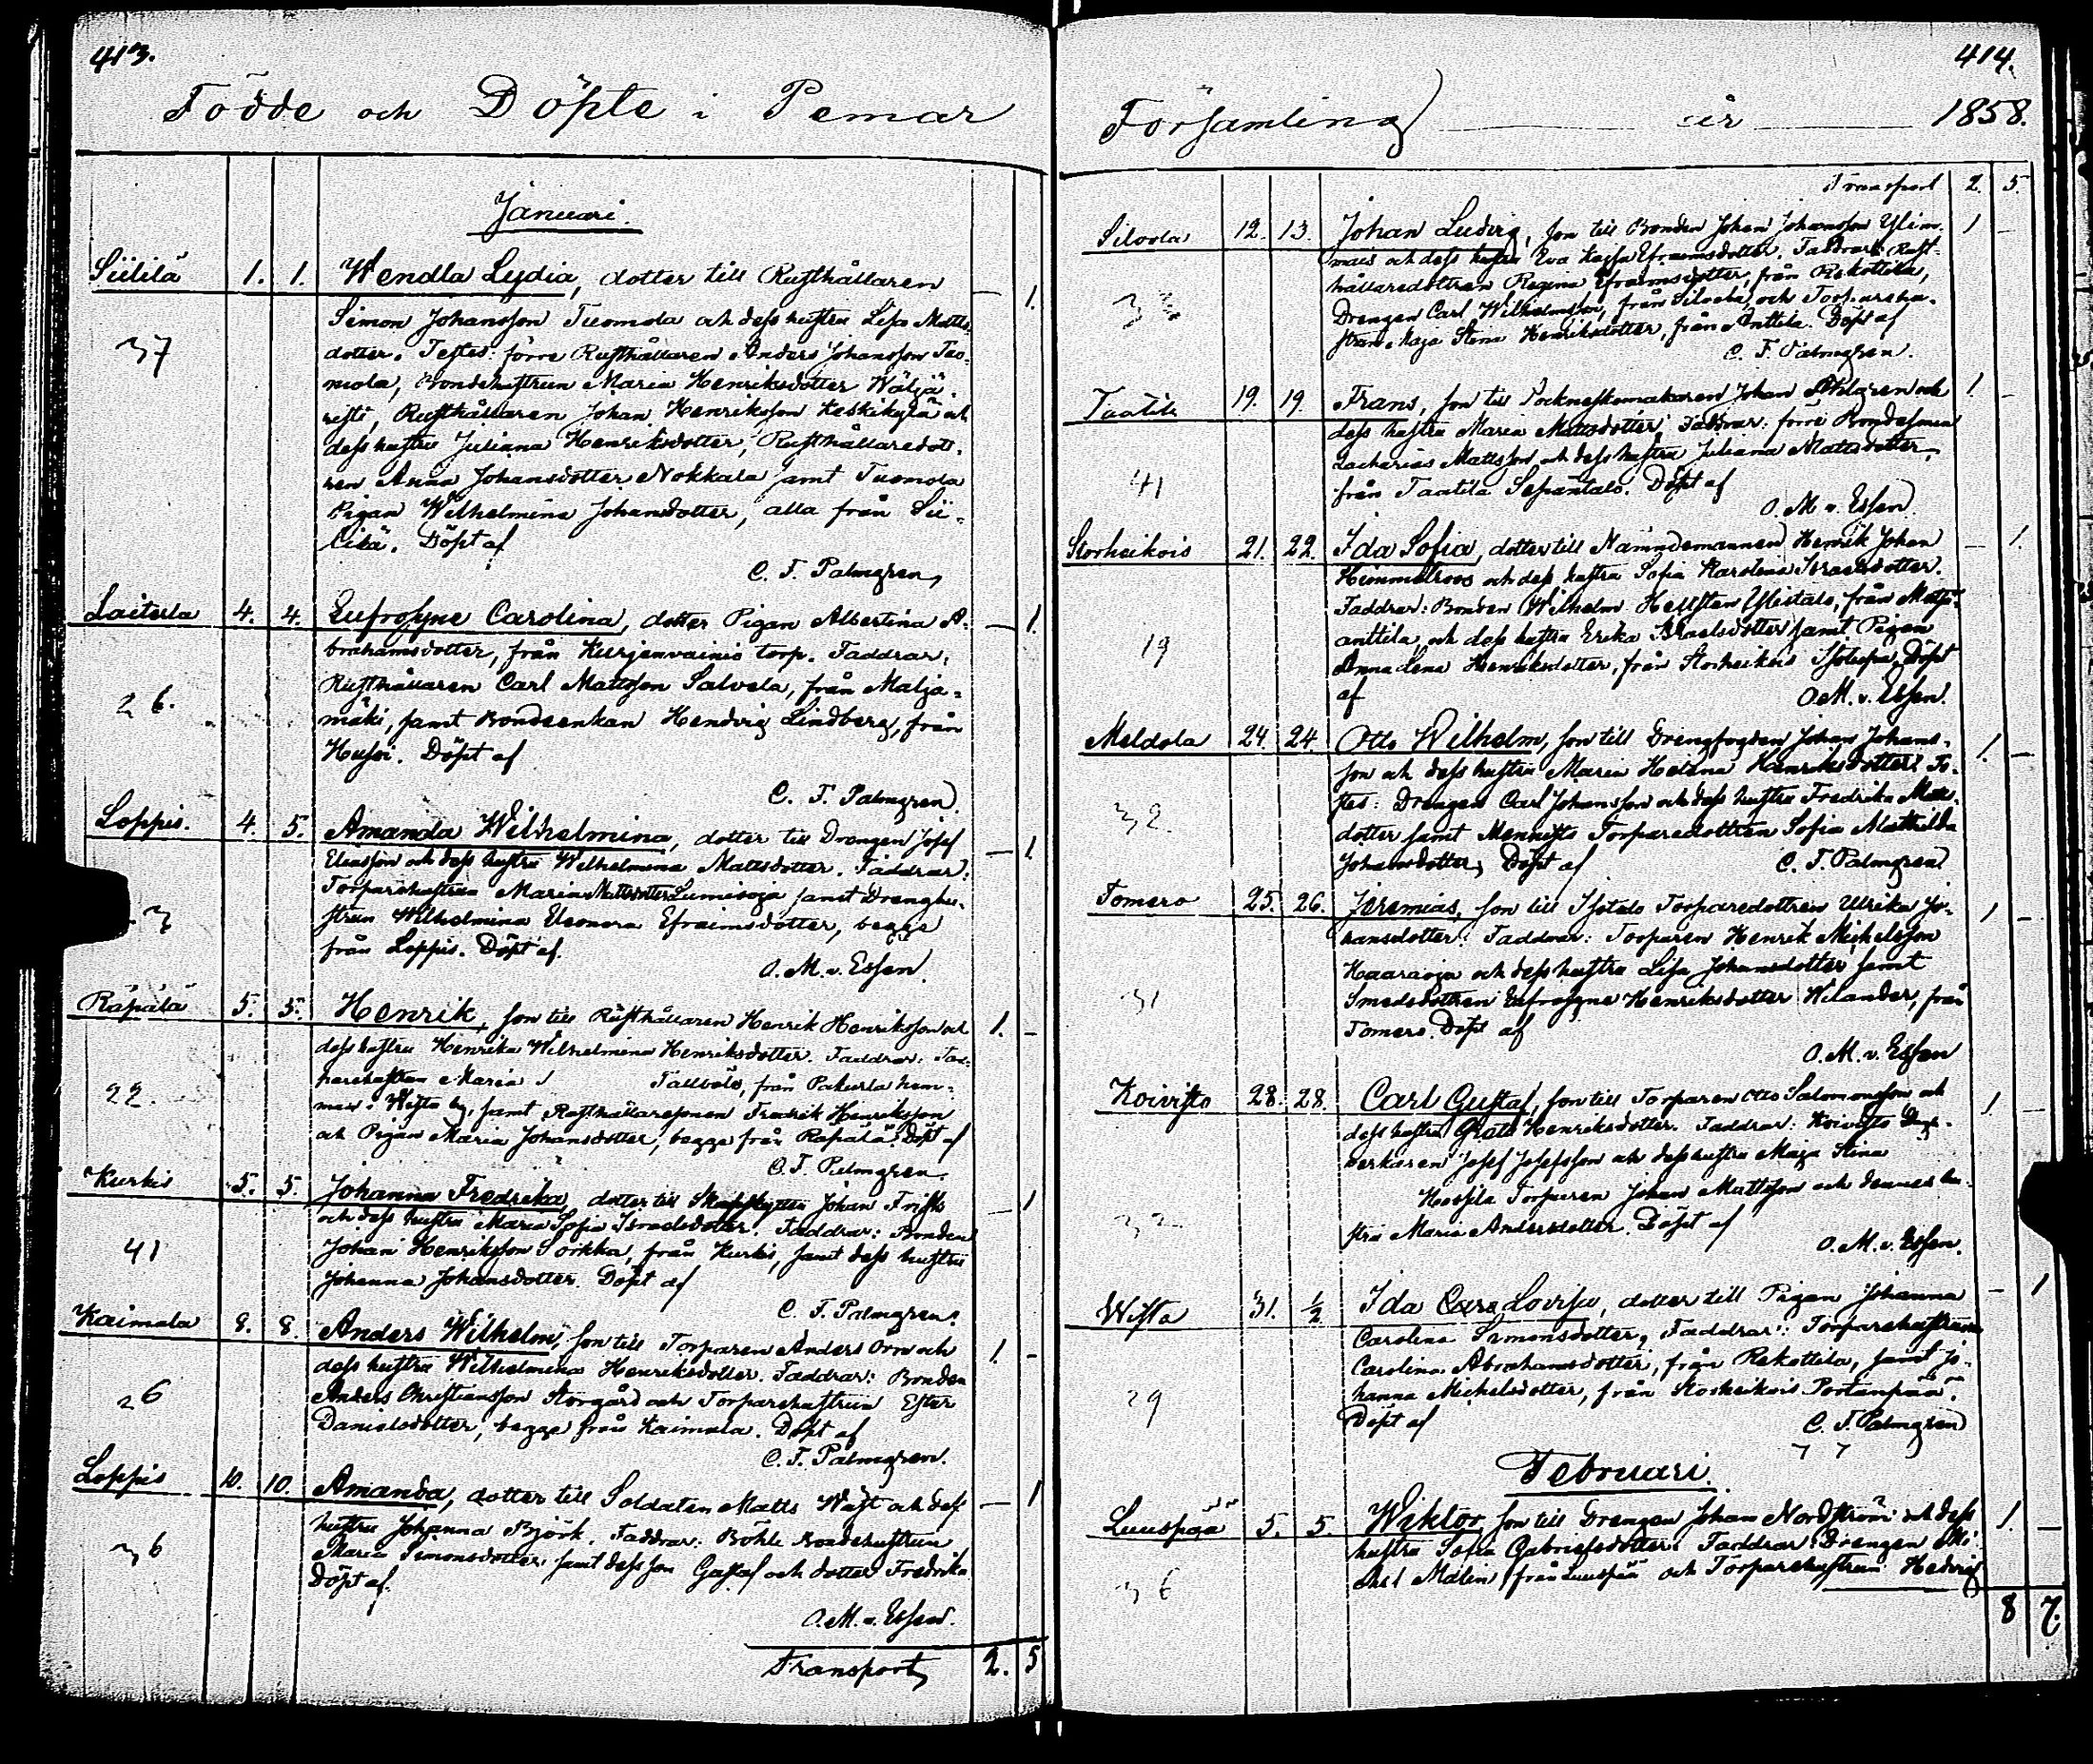 413.
Födde och Döpte i Pemar
Januari.
Siililä 1. 1. Wendla Lydia, dotter till Rusthållaren — 1.
Simon Johansson Tuomola och dess hustru Lisa Matts
dotter. Testes: förre Rusthållaren Anders Johansson Tuo-
mola, Bondehustrun Maria Henriksdotter Wäljä
37
risti, Rusthållaren Johan Henriksson Keskikylä och
dess hustru Juliana Henriksdotter, Rusthållaredott-
ren Anna Johansdotter Nokkala samt Tuomola
Pigan Wilhelmina Johansdotter, alla från Sii-
lilä. Döpt af
C. F. Palmgren,
Laiterla 4. 4. Eufrosyne Carolina, dotter Pigan Albertina A- — 1.
brahamsdotter, från Kurjenvainio torp. Faddrar:
Rusthållaren Carl Mattsson Salvela, från Malja-
26.
mäki, samt Bondeenkan Hendvig Lindberg, från
Husoi. Döpt af
C. F. Palmgren.
Loppis. 4. 5. Amanda Wilhelmina, dotter till Drengen Josef — 1
Eliasson och dess hustru Wilhelmina Mattsdotter. Faddrar:
Torparehustrun Maria Mattsdotter Lumisoja samt Drenghu-
strun Wilhelmina Eleonora Efraimsdotter, begge
från Loppis. Döpt af.
O. M. v. Essen.
Räpälä 5. 5. Henrik, son till Rusthållaren Henrik Henriksson och 1. -
dess hustru Henrika Wilhelmina Henriksdotter. Faddrar: Tor-
parehustrun Maria Tallbölä, från Pakurla hem-
22.
man. Wista by, samt Rusthållaresonen Fredrik Henriksson
och Pigan Maria Johansdotter, begge från Räpälä. Döpt af
C. F. Palmgren.
Kurkis 5. 5. Johanna Fredrika, dotter till Johan Frisk — 1
och dess hustru Maria Sofia Israelsdotter. Faddrar: Bonden
41
Johan Henriksson Sorkka, från Kurkis, samt dess hustru
Johanna Johansdotter. Döpt af
C. F. Palmgren.
Kaimala 8. 8. Anders Wilhelm, son till Torparen Anders Orn och 1. -
dess hustru Wilhelmina Henriksdotter. Faddrar: Bonden
26
Anders Christiansson Storgård och Torparehustrun Ester
Danielsdotter, begge från Kaimala. Döpt af
C. F. Palmgren.
Loppis 10. 10. Amanda, dotter till Soldaten Matts Wäst och dess — 1
hustru Johanna Björk. Faddrar: Böhle Bondehustrun
36
Maria Simonsdotter, samt dess son Gustaf och dotter Fredrika
Döpt af.
O. M. v. Essen.
Transport 2. 5
414.
Församling år 1858.
Transport 2. 5.
Silvola 12. 13. Johan Ludvig, son till Bonden Johan Johansson Ylim- 1 -
mais och dess hustru Eva Kajsa Efraimsdotter. Faddrar: Rust-
hållaredottren Regina Efraimsdotter, från Rekottila,
Drengen Carl Wilhelmsson, från Silvola och Torparehu-
strun Maja Stina Henriksdotter, från Anttila. Döpt af
C. F. Palmgren.
Taatila 19. 19. Frans, son till Sockneskomakaren Johan Ahlgren och 1. -
dess hustru Maria Mattsdotter. Faddrar: förre Bondesonen
Zacharias Mattsson och dess hustru Juliana Mattsdotter,
41
från Taatila Sepäntalo. Döpt af
O. M v. Essen
Storheikois 21. 22. Ida Sofia, dotter till Nämndemannen Henrik Johan — 1.
Himmelroos och dess hustru Sofia Karolina Israelsdotter.
Faddrar: Bonden Wilhelm Hellsten Ylistalo, från Mattjä-
anttila, och dess hustru Erika Israelsdotter samt Pigan
19
Anna Lena Henriksdotter, från Storheikois Isotupa. Döpt
af O.M. v. Essen.
Meldola 24. 24. Otto Wilhelm, son till Drengfogden Johan Johans- 1. -
son och dess hustru Maria Helena Henriksdotter. Te-
stes: Drengen Carl Johansson och dess hustru Fredrika Matts-
32.
dotter samt Mennisto Torparedottren Sofia Mathilda
Johansdotter, Döpt af C. F. Palmgren
Tomero 25. 26. Jeremias, son till Isotalo Torparedottren Ulrika Jo- 1 -
hansdotter. Faddrar: Torparen Henrik Michelsson
Haaraoja och dess hustru Lisa Johansdotter samt
31
Smedsdottren Eufrosyne Henriksdotter Wilander, från
Tomero. Döpt af
O. M. v. Essen
Koivisto 28. 28. Carl Gustaf, son till Torparen Otto Salomonsson och 1 -
dess hustru Greta Henriksdotter. Faddrar: Koivisto Dags-
verkaren Josef Josefsson och dess hustru Maja Stina
Hossila Torparen Johan Mattsson och dennes hu-
32
stru Maria Andersdotter. Döpt af
O. M. v. Essen.
Wista 31. 1/2 Ida Lovisa, dotter till Pigan Johanna - 1
Carolina Simonsdotter, Faddrar: Torparehustrun
Carolina Abrahamsdotter, från Rekottila, samt Jo-
29
hanna Michelsdotter, från Storheikois Portanpää.
Döpt af C. F. Palmgren
Februari.
Luuspää 5. 5. Wiktor, son till Drengen Johan Nordström och dess 1. —
hustru Sofia Gabrielsdotter. Faddrar: Drengen Mi-
36
chel Malin från Luuspää och Torparehustrun Hedvig
8 7.